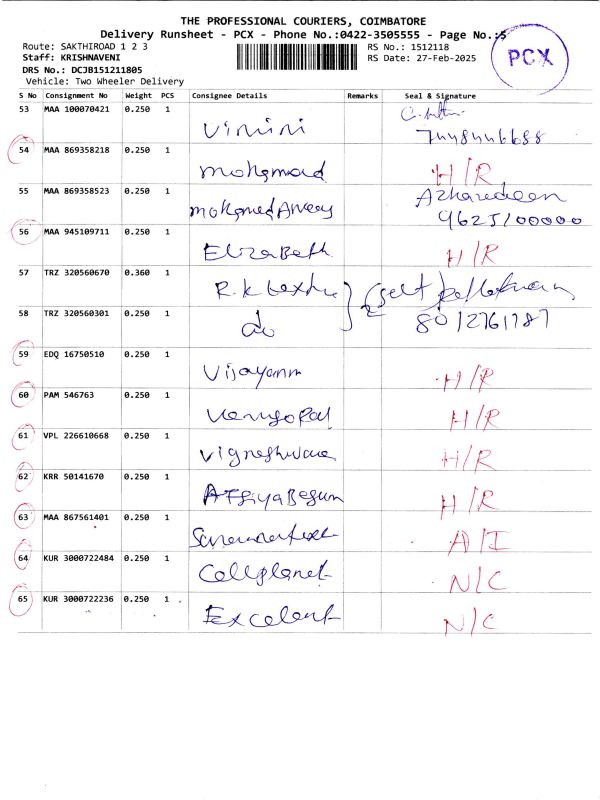 THE PROFESSIONAL COURIERS, COIMBATORE
Delivery Runsheet - PCX - Phone No.:0422-3505555 - Page No.:5
Route: SAKTHIROAD 1 2 3
RS No.: 1512118
Staff: KRISHNAVENI
RS Date: 27-Feb-2025
DRS No.: DCJB151211805
Vehicle: Two Wheeler Delivery
PCX
S No Consignment No Weight PCS Consignee Details Remarks Seal & Signature
53 MAA 100070421 0.250 1 Vimini
7448446688
54 MAA 869358218 0.250 1 H/R
55 MAA 869358523 0.250 1 Azharudeen
9625100000
56 MAA 945109711 0.250 1 Elizabeth H/R
57 TRZ 320560670 0.360 1 R.K textu
58 TRZ 320560301 0.250 1 do 8012761787
59 EDQ 16750510 0.250 1 Vijayann H/R
60 PAM 546763 0.250 1 Venugopal H/R
61 VPL 226610668 0.250 1 Vigneshwara H/R
62 KRR 50141670 0.250 1 AfsiyaBegum H/R
63 MAA 867561401 0.250 1 A/I
64 KUR 3000722484 0.250 1 Cellplanet N/C
65 KUR 3000722236 0.250 1 Excelent N/C